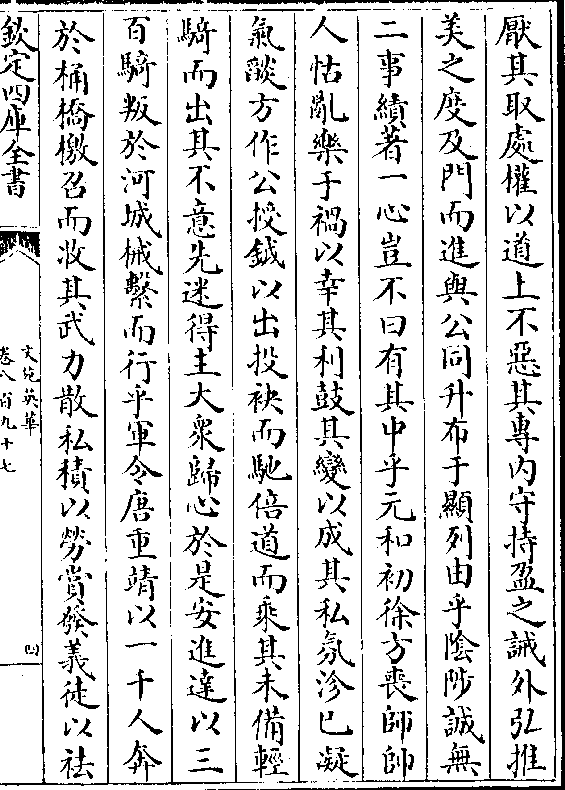 厭其取處權以道上不惡其專内守持盈之誡外弘推
美之度及門而進與公同升布于顯列由乎陰陟誠無
二事績著一心豈不曰有其中乎元和初徐方喪師帥
人怙亂樂于禍以幸其利鼓其變以成其私氛沴已凝
氣燄方作公授鉞以出投袂而馳倍道而乘其未備輕
騎而出其不意先迷得主大衆歸心於是安進達以三
百騎叛於河城械繫而行乎軍令唐重靖以一千人奔
於桶橋檄召而收其武力散私積以勞賞發義徒以祛
欽定四庫全書
文苑英華
卷八百九十七
四